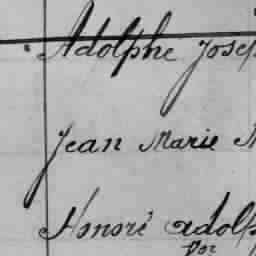 Adolphe Josep
Jean Marie
Honoré Adolp